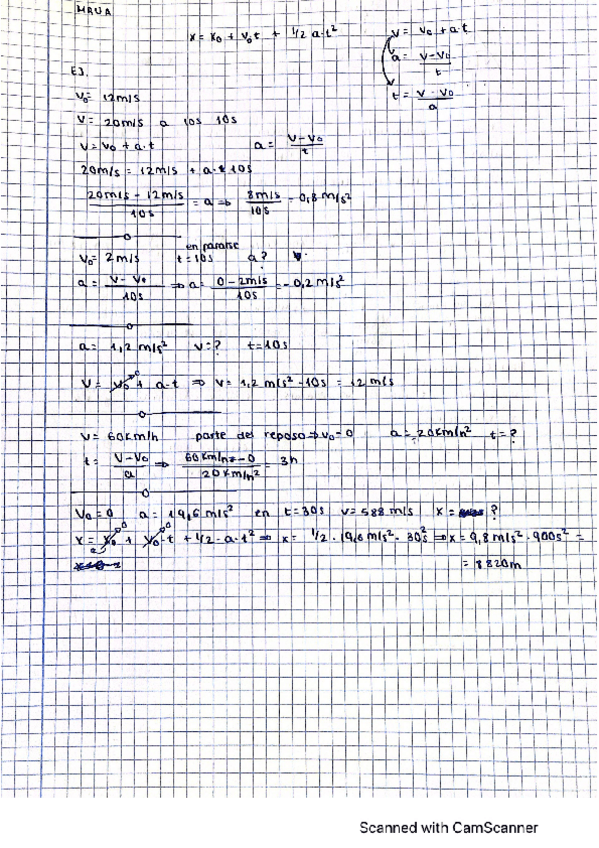 MRUA
x = x₀ + v₀t + 1/2 a·t²
v = v₀ + a·t
a = v-v₀ / t
t = v-v₀ / a
EJ.
v₀ = 12m/s
v = 20m/s a 10s 10s
v = v₀ + a·t a = v-v₀ / t
20m/s = 12m/s + a·t 10s
20m/s - 12m/s / 10s = a ⇒ 8m/s / 10s = 0,8 m/s²
en pararse
v₀ = 2m/s t=10s a?
a = v-v₀ / 10s ⇒ a = 0-2m/s / 10s = -0,2 m/s²
a = 1,2 m/s² v=? t=10s
v = v₀ + a·t ⇒ v = 1,2 m/s²·10s = 12 m/s
v = 60km/h parte del reposo ⇒ v₀=0 a = 20km/h² t=?
t = v-v₀ / a ⇒ 60km/h - 0 / 20km/h² = 3h
v₀=0 a = 19,6 m/s² en t=30s v=588 m/s x = ?
x = x₀ + v₀·t + 1/2·a·t² ⇒ x = 1/2·19,6 m/s²·30²s ⇒ x = 9,8 m/s²·900s² =
= 8820m
Scanned with CamScanner